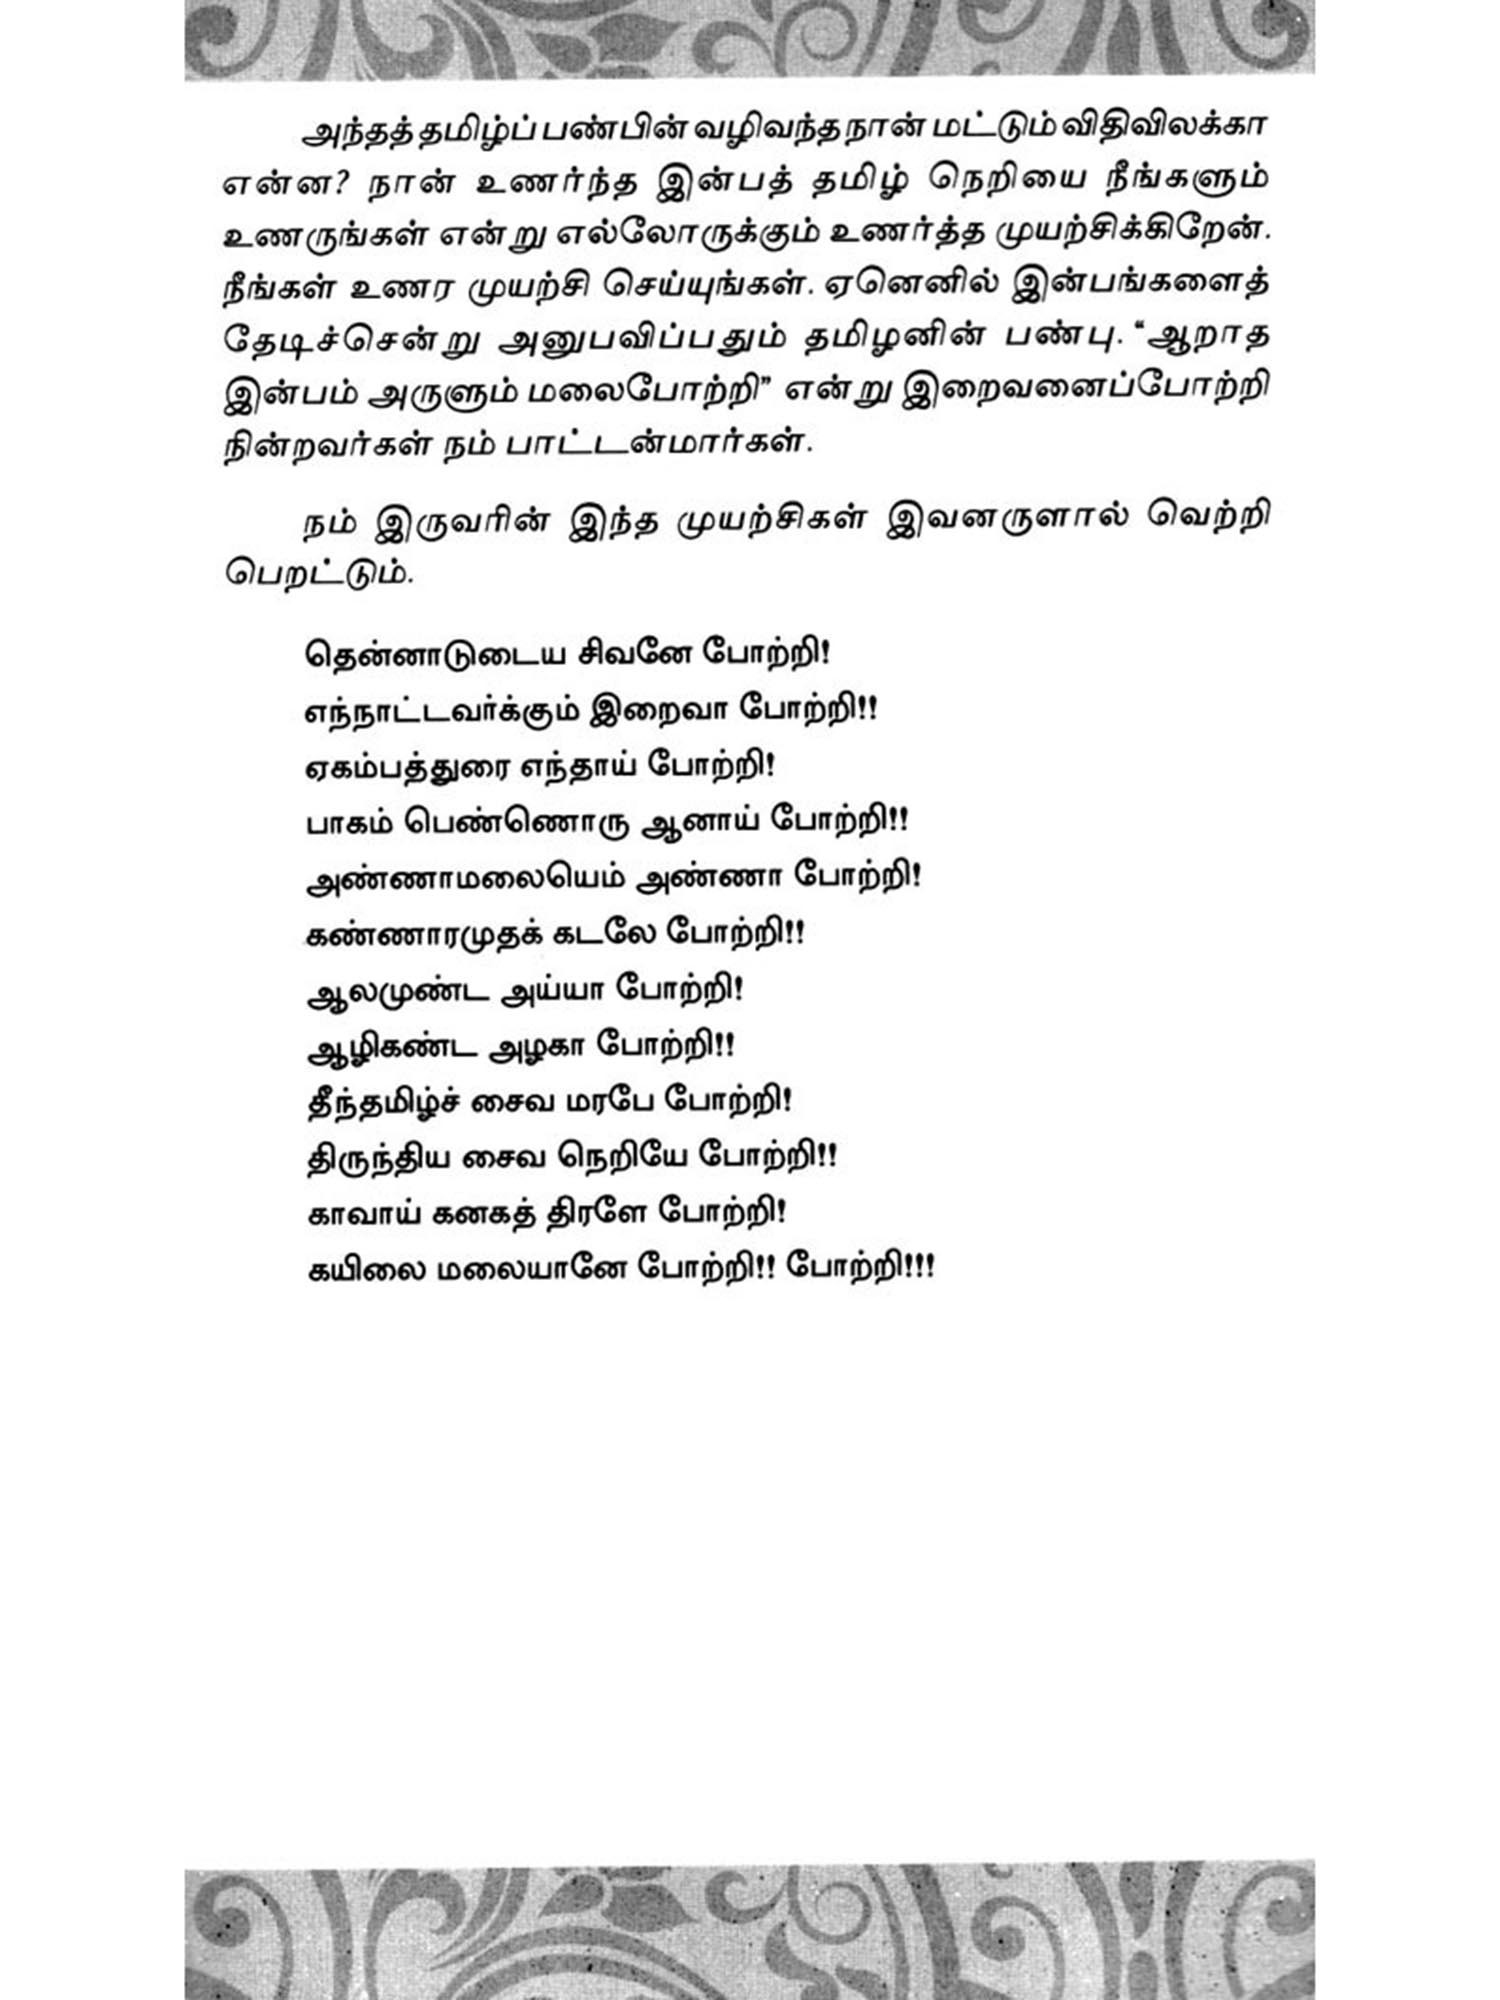 அந்தத் தமிழ்ப் பண்பின் வழிவந்த நான் மட்டும் விதிவிலக்கா
என்ன? நான் உணர்ந்த இன்பத் தமிழ் நெறியை நீங்களும்
உணருங்கள் என்று எல்லோருக்கும் உணர்த்த முயற்சிக்கிறேன்.
நீங்கள் உணர முயற்சி செய்யுங்கள். ஏனெனில் இன்பங்களைத்
தேடிச்சென்று அனுபவிப்பதும் தமிழனின் பண்பு. “ஆறாத
இன்பம் அருளும் மலைபோற்றி” என்று இறைவனைப்போற்றி
நின்றவர்கள் நம் பாட்டன்மார்கள்.
நம் இருவரின் இந்த முயற்சிகள் இவனருளால் வெற்றி
பெறட்டும்.
தென்னாடுடைய சிவனே போற்றி!
எந்நாட்டவர்க்கும் இறைவா போற்றி!!
ஏகம்பத்துரை எந்தாய் போற்றி!
பாகம் பெண்ணொரு ஆனாய் போற்றி!!
அண்ணாமலையெம் அண்ணா போற்றி!
கண்ணாரமுதக் கடலே போற்றி!!
ஆலமுண்ட அய்யா போற்றி!
ஆழிகண்ட அழகா போற்றி!!
தீந்தமிழ்ச் சைவ மரபே போற்றி!
திருந்திய சைவ நெறியே போற்றி!!
காவாய் கனகத் திரளே போற்றி!
கயிலை மலையானே போற்றி!! போற்றி!!!